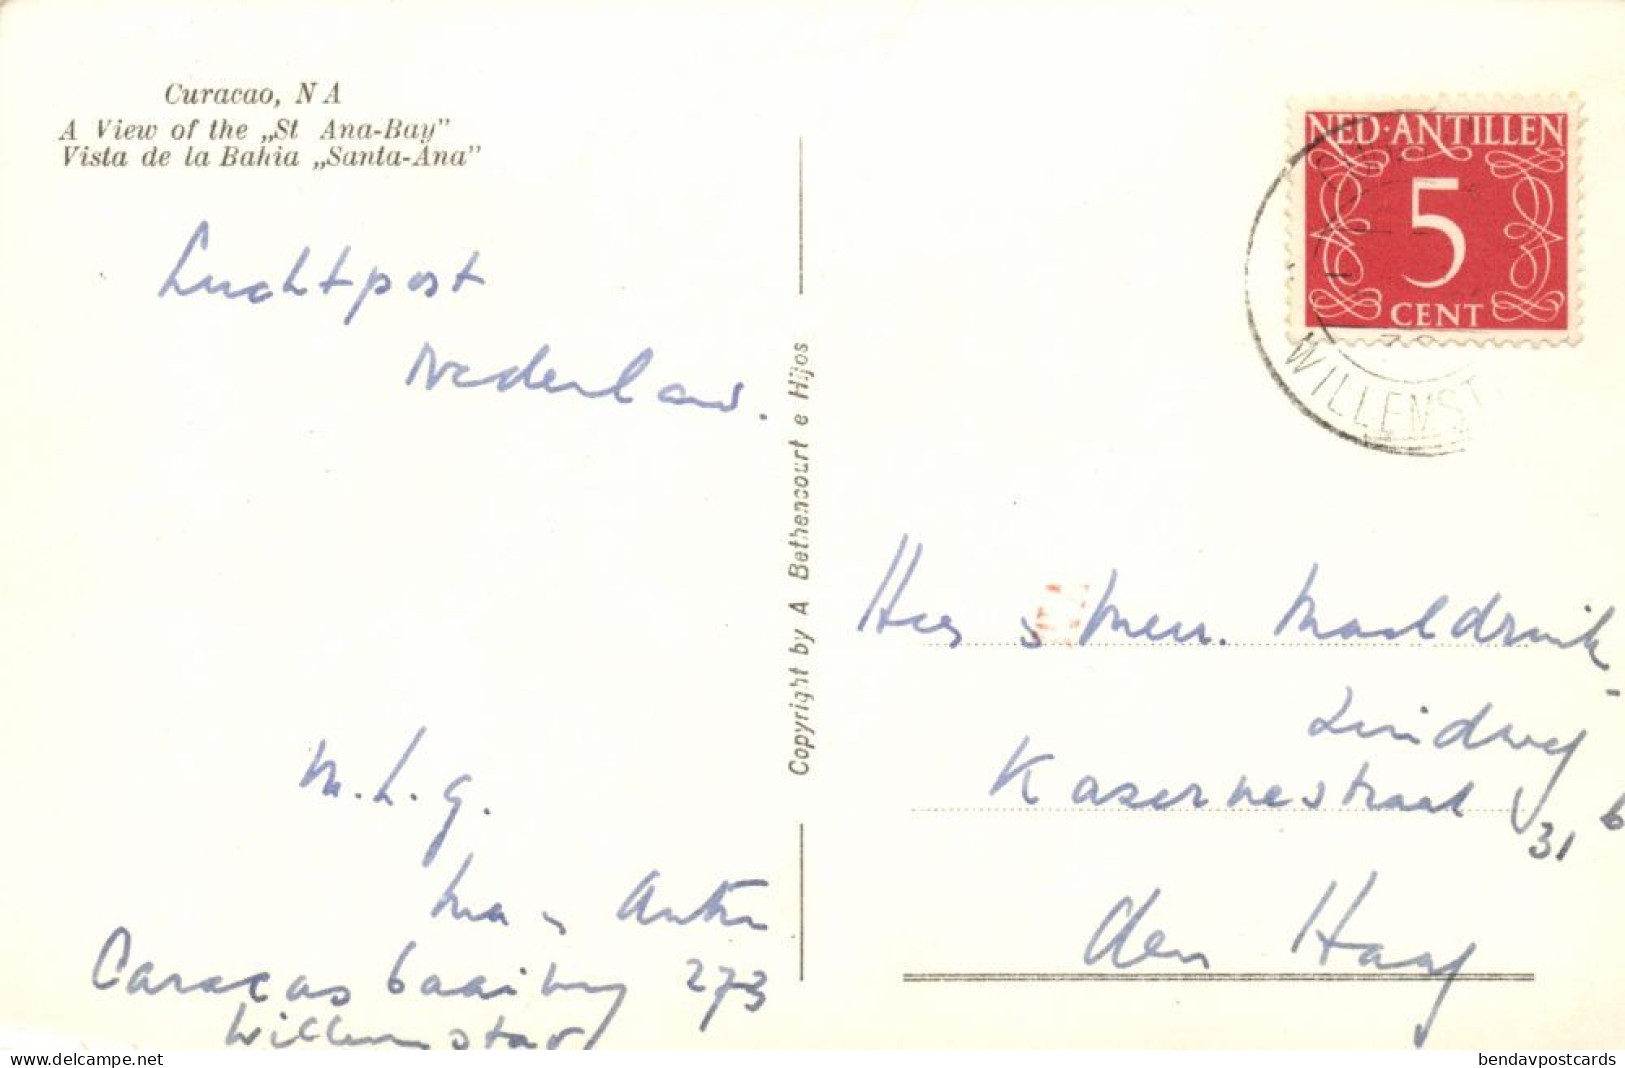 Curacao, N A
A View of the „St Ana-Bay”
Vista de la Bahia „Santa-Ana”
Luchtpost
Nederland.
M.L.G.
Caracasbaaiweg 273
Willemstad
Copyright by A Bethencourt e Hijos
NED·ANTILLEN
5
CENT
WILLEMST
Mevr.
Lindweg
Kazernestraat
31 b
Den Haag
www.delcampe.net
bendavpostcards